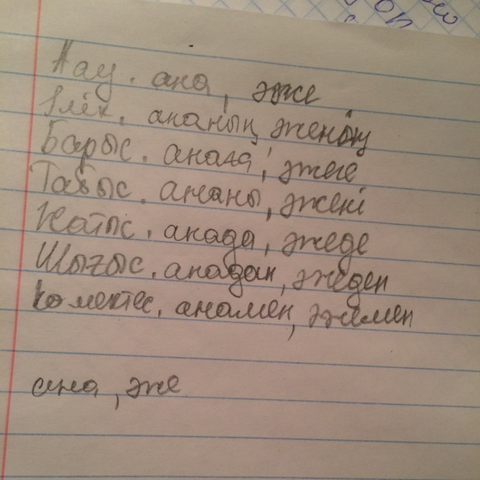 Атау. ана, әже
Ілік. ананың әженің
Барыс. анаға, әжеге
Табыс. ананы, әжені
Жатыс. анада, әжеде
Шығыс. анадан, әжеден
Көмектес. анамен, әжемен
ана, әже